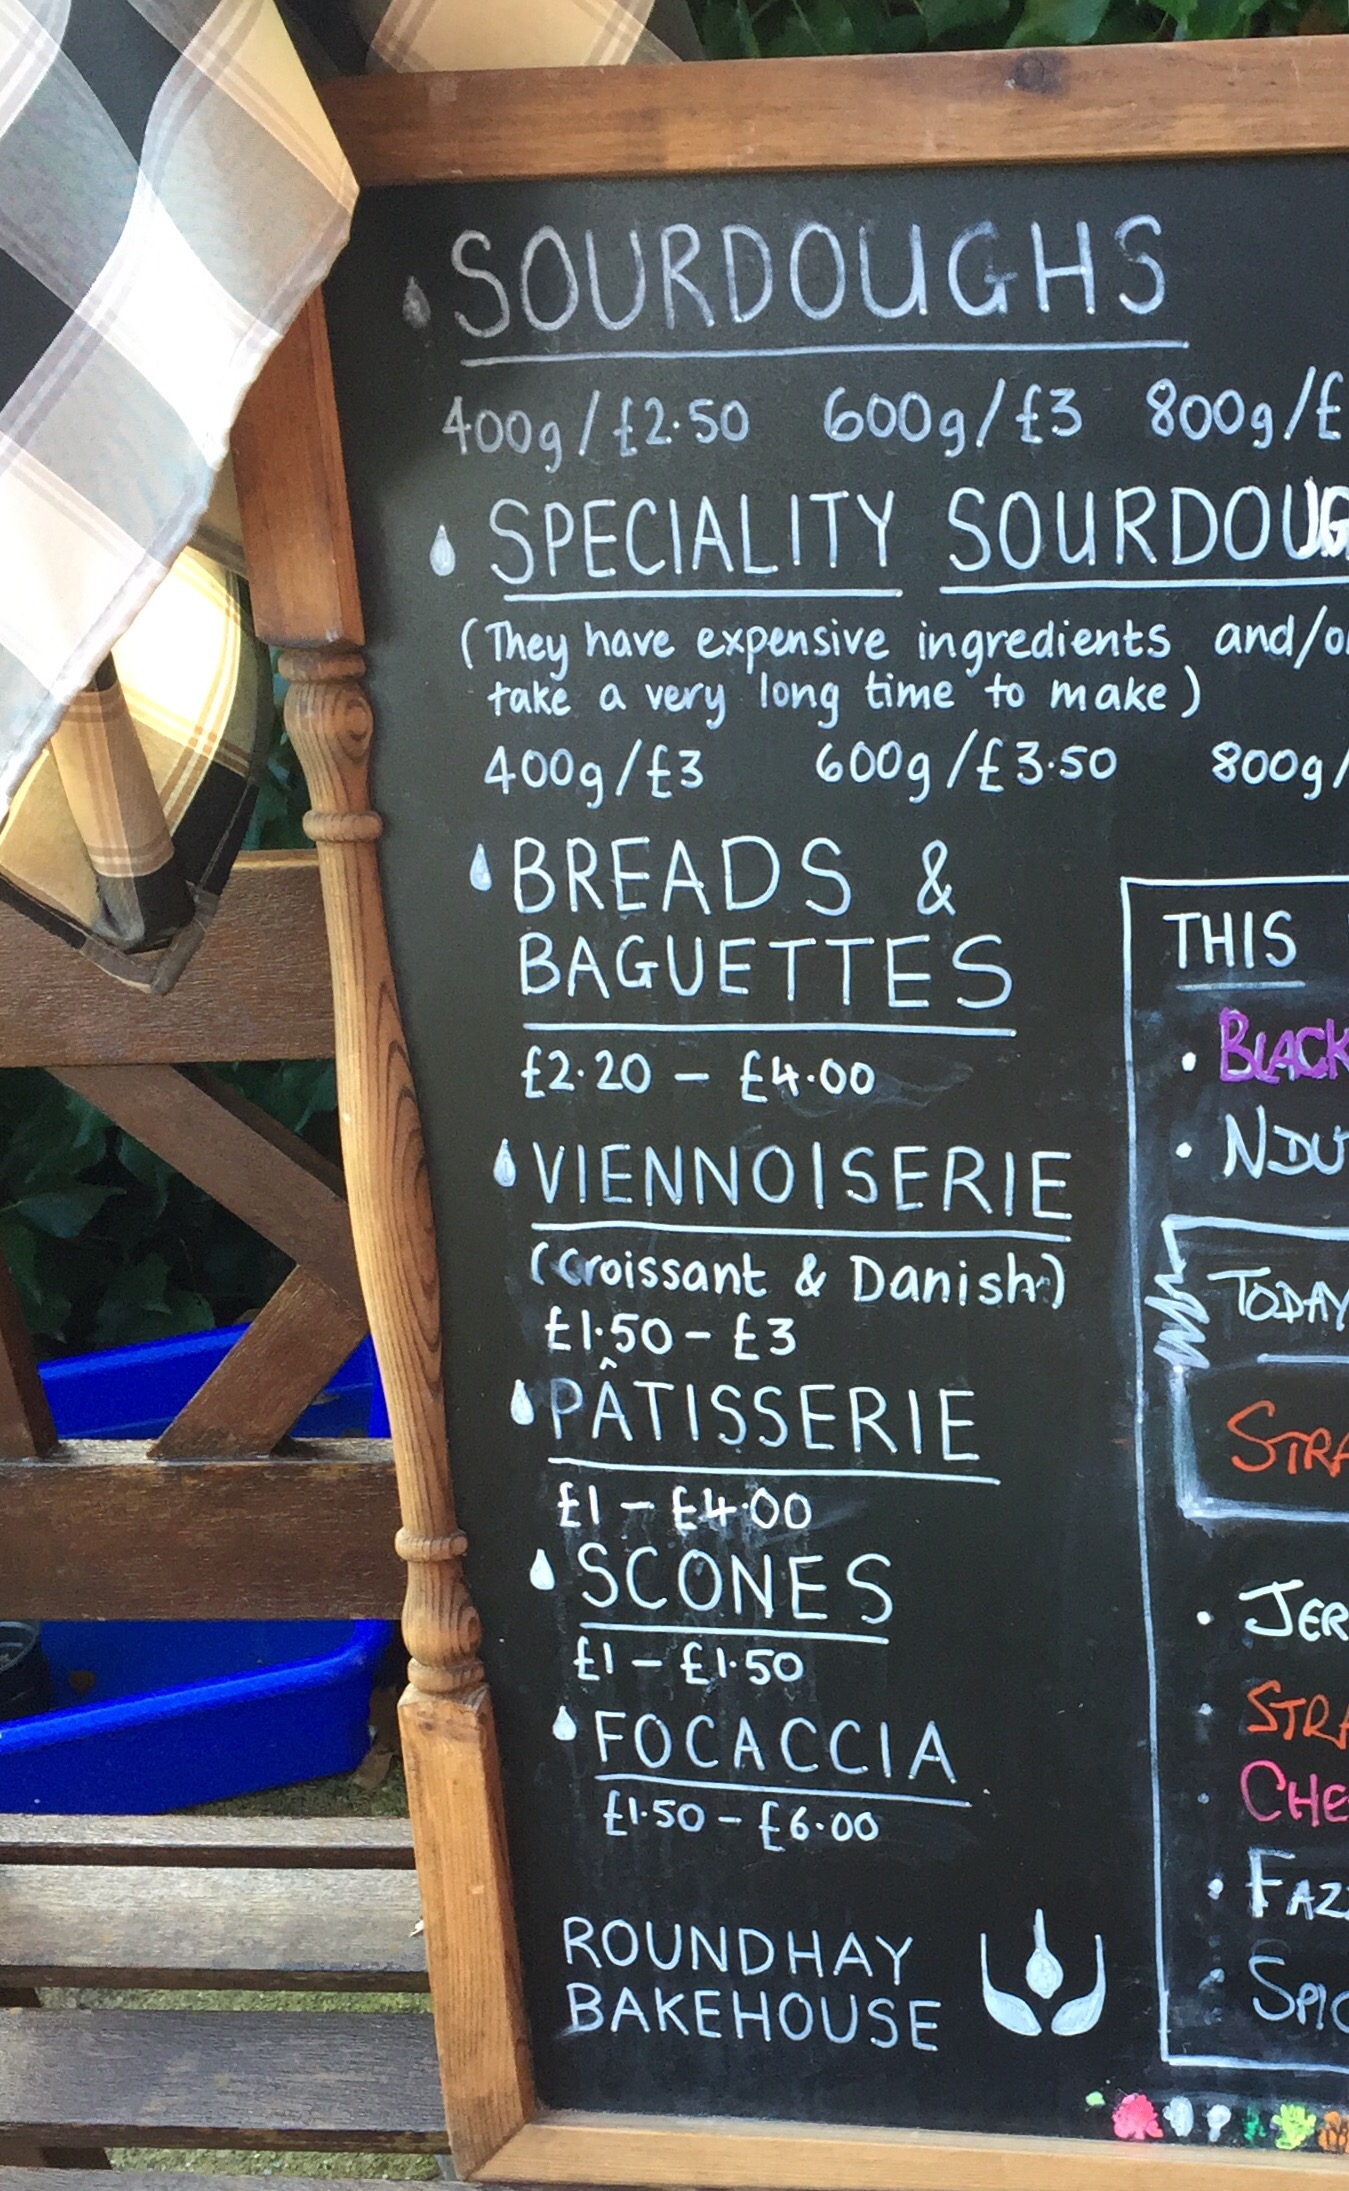 SOURDOUGHS
400g/£2.50 600g/£3 800g/£
SPECIALITY SOURDOUG
(They have expensive ingredients and/or
take a very long time to make)
400g/£3 600g/£3.50 800g/
BREADS &
BAGUETTES
£2.20 – £4.00
VIENNOISERIE
(Croissant & Danish)
£1.50 – £3
PÂTISSERIE
£1 – £4.00
SCONES
£1 – £1.50
FOCACCIA
£1.50 – £6.00
ROUNDHAY
BAKEHOUSE
THIS
• BLACK
• NDU
TODAY
STRA
• JER
• STRA
• CHE
• FAZ
SPIC